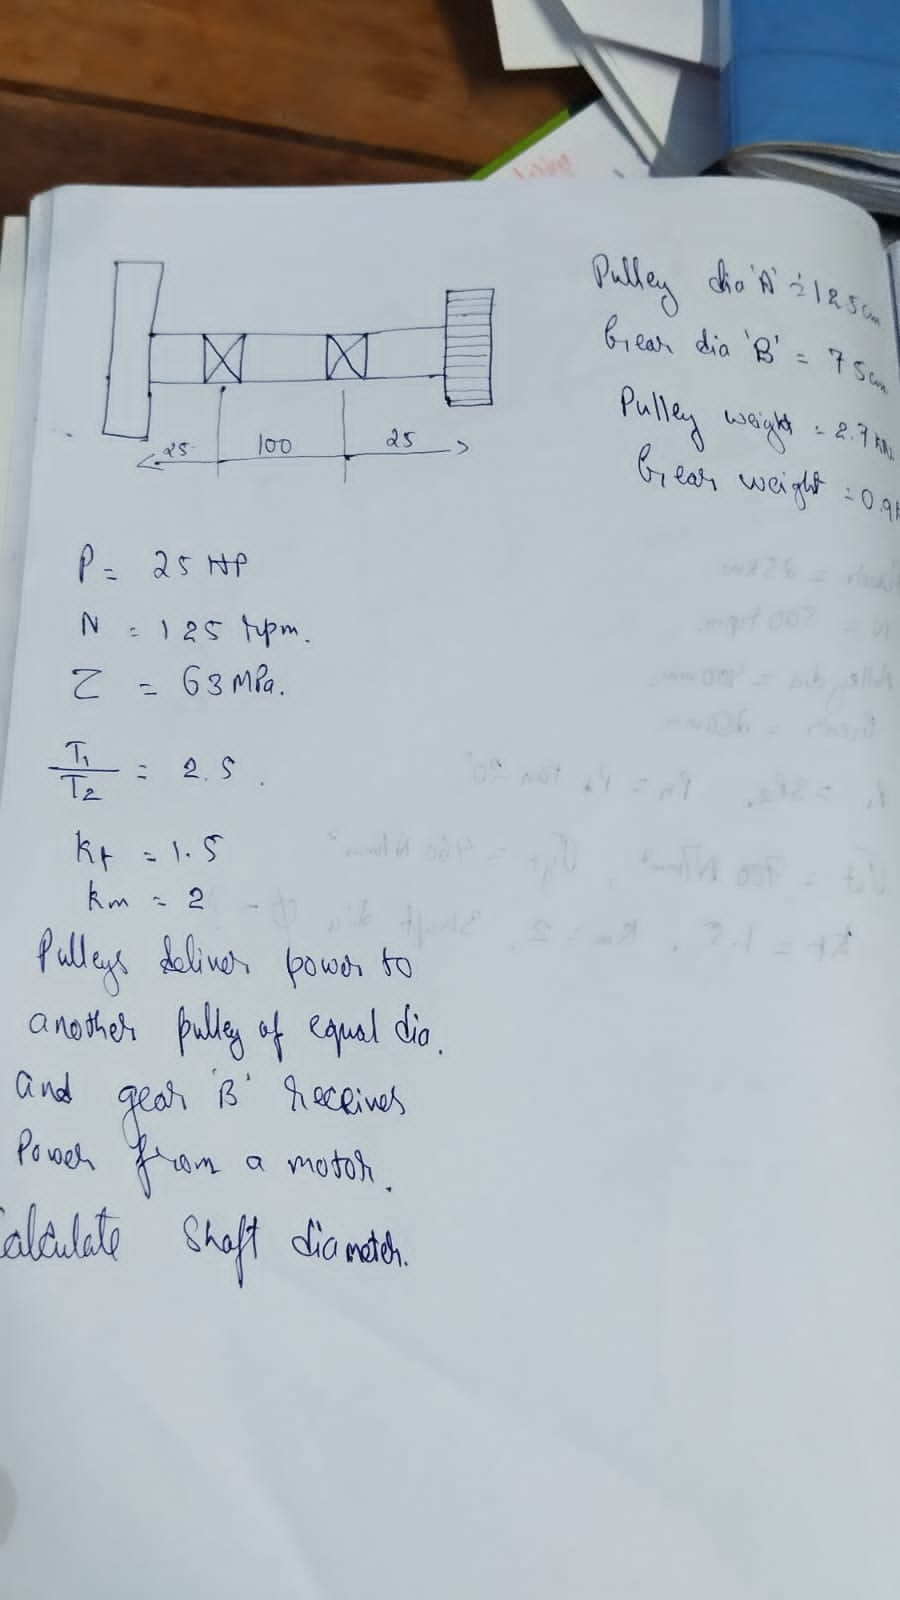 Pulley dia 'A' = 125 cm
Gear dia 'B' = 75 cm
Pulley weight = 2.7
Gear weight = 0.9
25 100 25
P = 25 HP
N = 125 rpm.
τ = 63 MPa.
T1/T2 = 2.5.
kt = 1.5
km = 2
Pulleys deliver power to
another pulley of equal dia.
and gear 'B' receives
Power from a motor.
Calculate Shaft diameter.